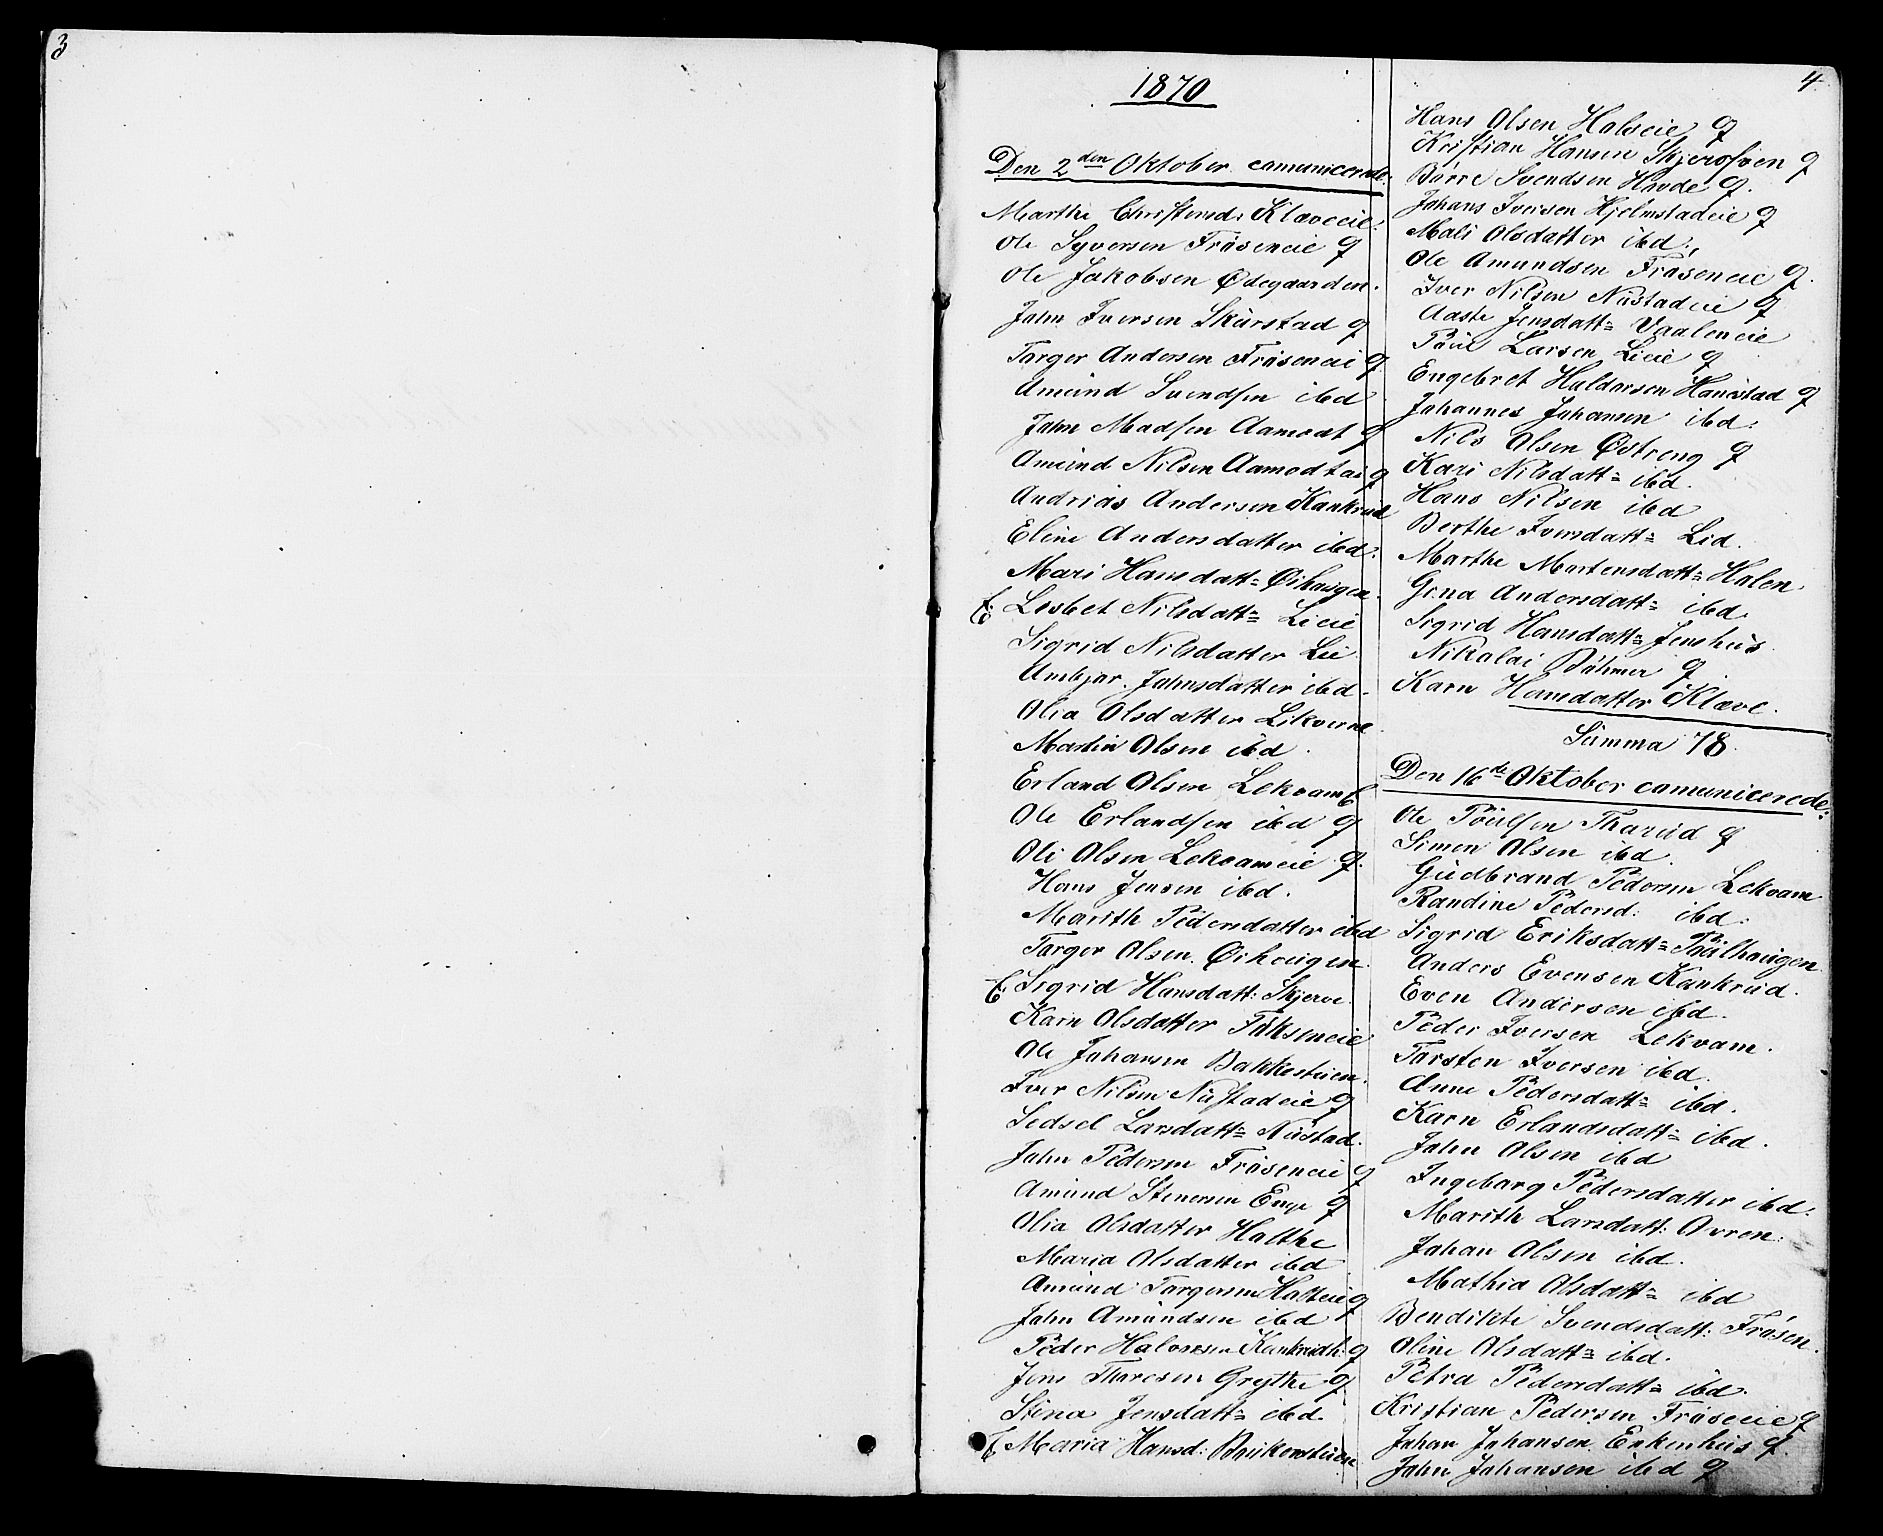 3
4
1870
Den 2den Oktober camunicerede:
Marthe Christensd: Klæveeie.
Ole Syversen Frøseneie g
Ole Jakobsen Ødegaarden.
Jahn Iversen Skürstad g
Targer Andersen Frøseneie g
Amünd Svendsen ibd
Jahn Madsen Aamodt g
Amünd Nilsen Aamodtei g
Andrias Andersen Kankrüd
Eline Andersdatter ibd:
Mari Hansdatt= Øihaugen.
Lisbet Nilsdatt= Lieie
Sigrid Nilsdatter Lie
Ambjør Jahnsdatter ibd.
Olia Olsdatter Likverne
Martin Olsen ibd.
Erland Olsen Lekvam
Ole Erlandsen ibd g
Ole Olsen Lekvameie g.
Hans Jensen ibd.
Marith Pedersdatter ibd
Targer Olsen Øihaugen.
Sigrid Hansdatt: Skjerve.
Karn Olsdatter Fakseneie
Ole Johansen Bakkestüen.
Iver Nilsen Nüstadeie g
Sedsel Larsdatt= Nüstad.
Jahn Pedersen Frøseneie g
Amünd Stenersen Enge g
Olia Olsdatter Halthe
Maria Olsdatter ibd
Amünd Targersen Halteie g
Jahn Amündsen ibd
Peder Halvorsen Kankrüdh: g
Jens Tharesen Grythe g
Stina Jensdatt= ibd.
Maria Hansd: Baukerstüen
Hans Olsen Halseie g
Kristian Hansen Skjerofven g
Børre Svendsen Havde g.
Johans Iversen Hjelmstadeie g
Mali Olsdatter ibd.
Ole Amundsen Frøseneie g.
Iver Nilsen Nüstadeie g
Aaste Jensdatt= Vaaleneie
Pöul Larsen Lieie g
Engebret Haldorsen Hanestad g
Johannes Johansen ibd.
Nils Olsen Østreng g
Kari Nilsdatt= ibd.
Hans Nilsen ibd
Berthe Iversdatt= Lid.
Marthe Martensdatt= Halen
Gina Andersdatt= ibd.
Sigrid Hansdatt= Jenshüs
Nikolai Bøhmer g
Karn Hansdatter Klæve.
Sümma 78.
Den 16de Oktober camunicerede:
Ole Pöulsen Tharüd g
Simen Olsen ibd.
Güdbrand Pedersen Lekvam
Randine Pedersd: ibd.
Sigrid Eriksdatt= Pöulhaugen
Anders Evensen Kankrüd.
Even Andersen ibd.
Peder Iversen Lekvam.
Tarsten Iversen ibd.
Anne Pedersdatt= ibd.
Karn Erlandsdatt= ibd.
Jahn Olsen ibd
Ingebarg Pedersdatter ibd.
Marith Larsdatt: Avren.
Johan Olsen ibd.
Mathia Olsdatt= ibd
Bendikte Svendsdatt: Frøsen.
Oline Olsdatt= ibd.
Petra Pedersdatt= ibd.
Kristian Pedersen Frøseeie g
Johan Johansen Enkenhüs g.
Jahn Johansen ibd g